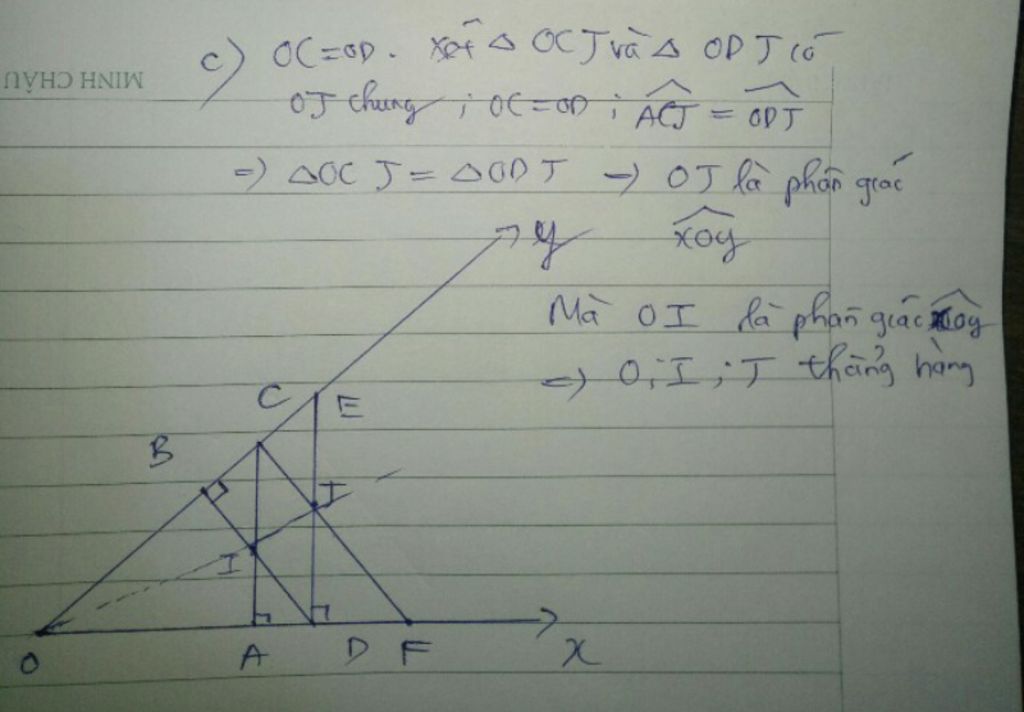 MINH CHÂU
c) OC=OD. Xét Δ OCJ và Δ ODJ có
OJ chung ; OC=OD ; ACJ = ODJ
=> ΔOCJ = ΔODJ → OJ là phân giác
xOy
Mà OI là phân giác xOy
=> O; I; J thẳng hàng
y
C E
B
J
I
O A D F x